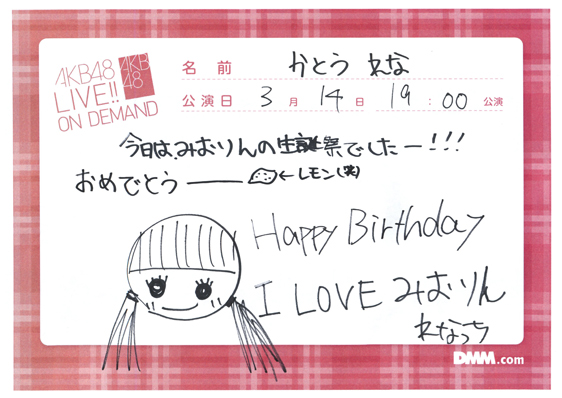 AKB48
LIVE!!
ON DEMAND
AKB
48
名前 かとう れな
公演日 3月 14日 19:00 公演
今日はみおりんの生誕祭でしたー!!!
おめでとう―― ←レモン(笑)
Happy Birthday
I LOVE みおりん
れなっち
DMM.com